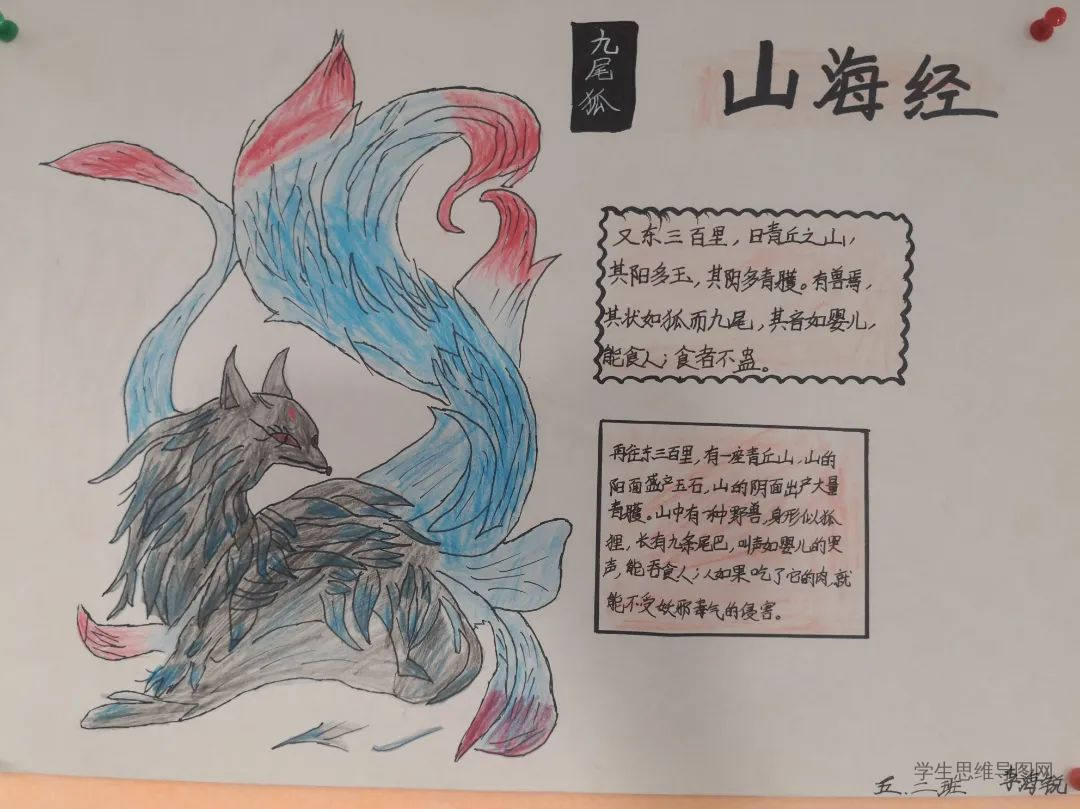 九尾狐
山海经
又东三百里，曰青丘之山，
其阳多玉，其阴多青雘。有兽焉，
其状如狐而九尾，其音如婴儿，
能食人；食者不蛊。
再往东三百里，有一座青丘山，山的
阳面盛产玉石，山的阴面出产大量
青雘。山中有一种野兽，身形似狐
狸，长有九条尾巴，叫声如婴儿的哭
声，能吞食人；人如果吃了它的肉，就
能不受妖邪毒气的侵害。
学生思维导图网
五.二班 李